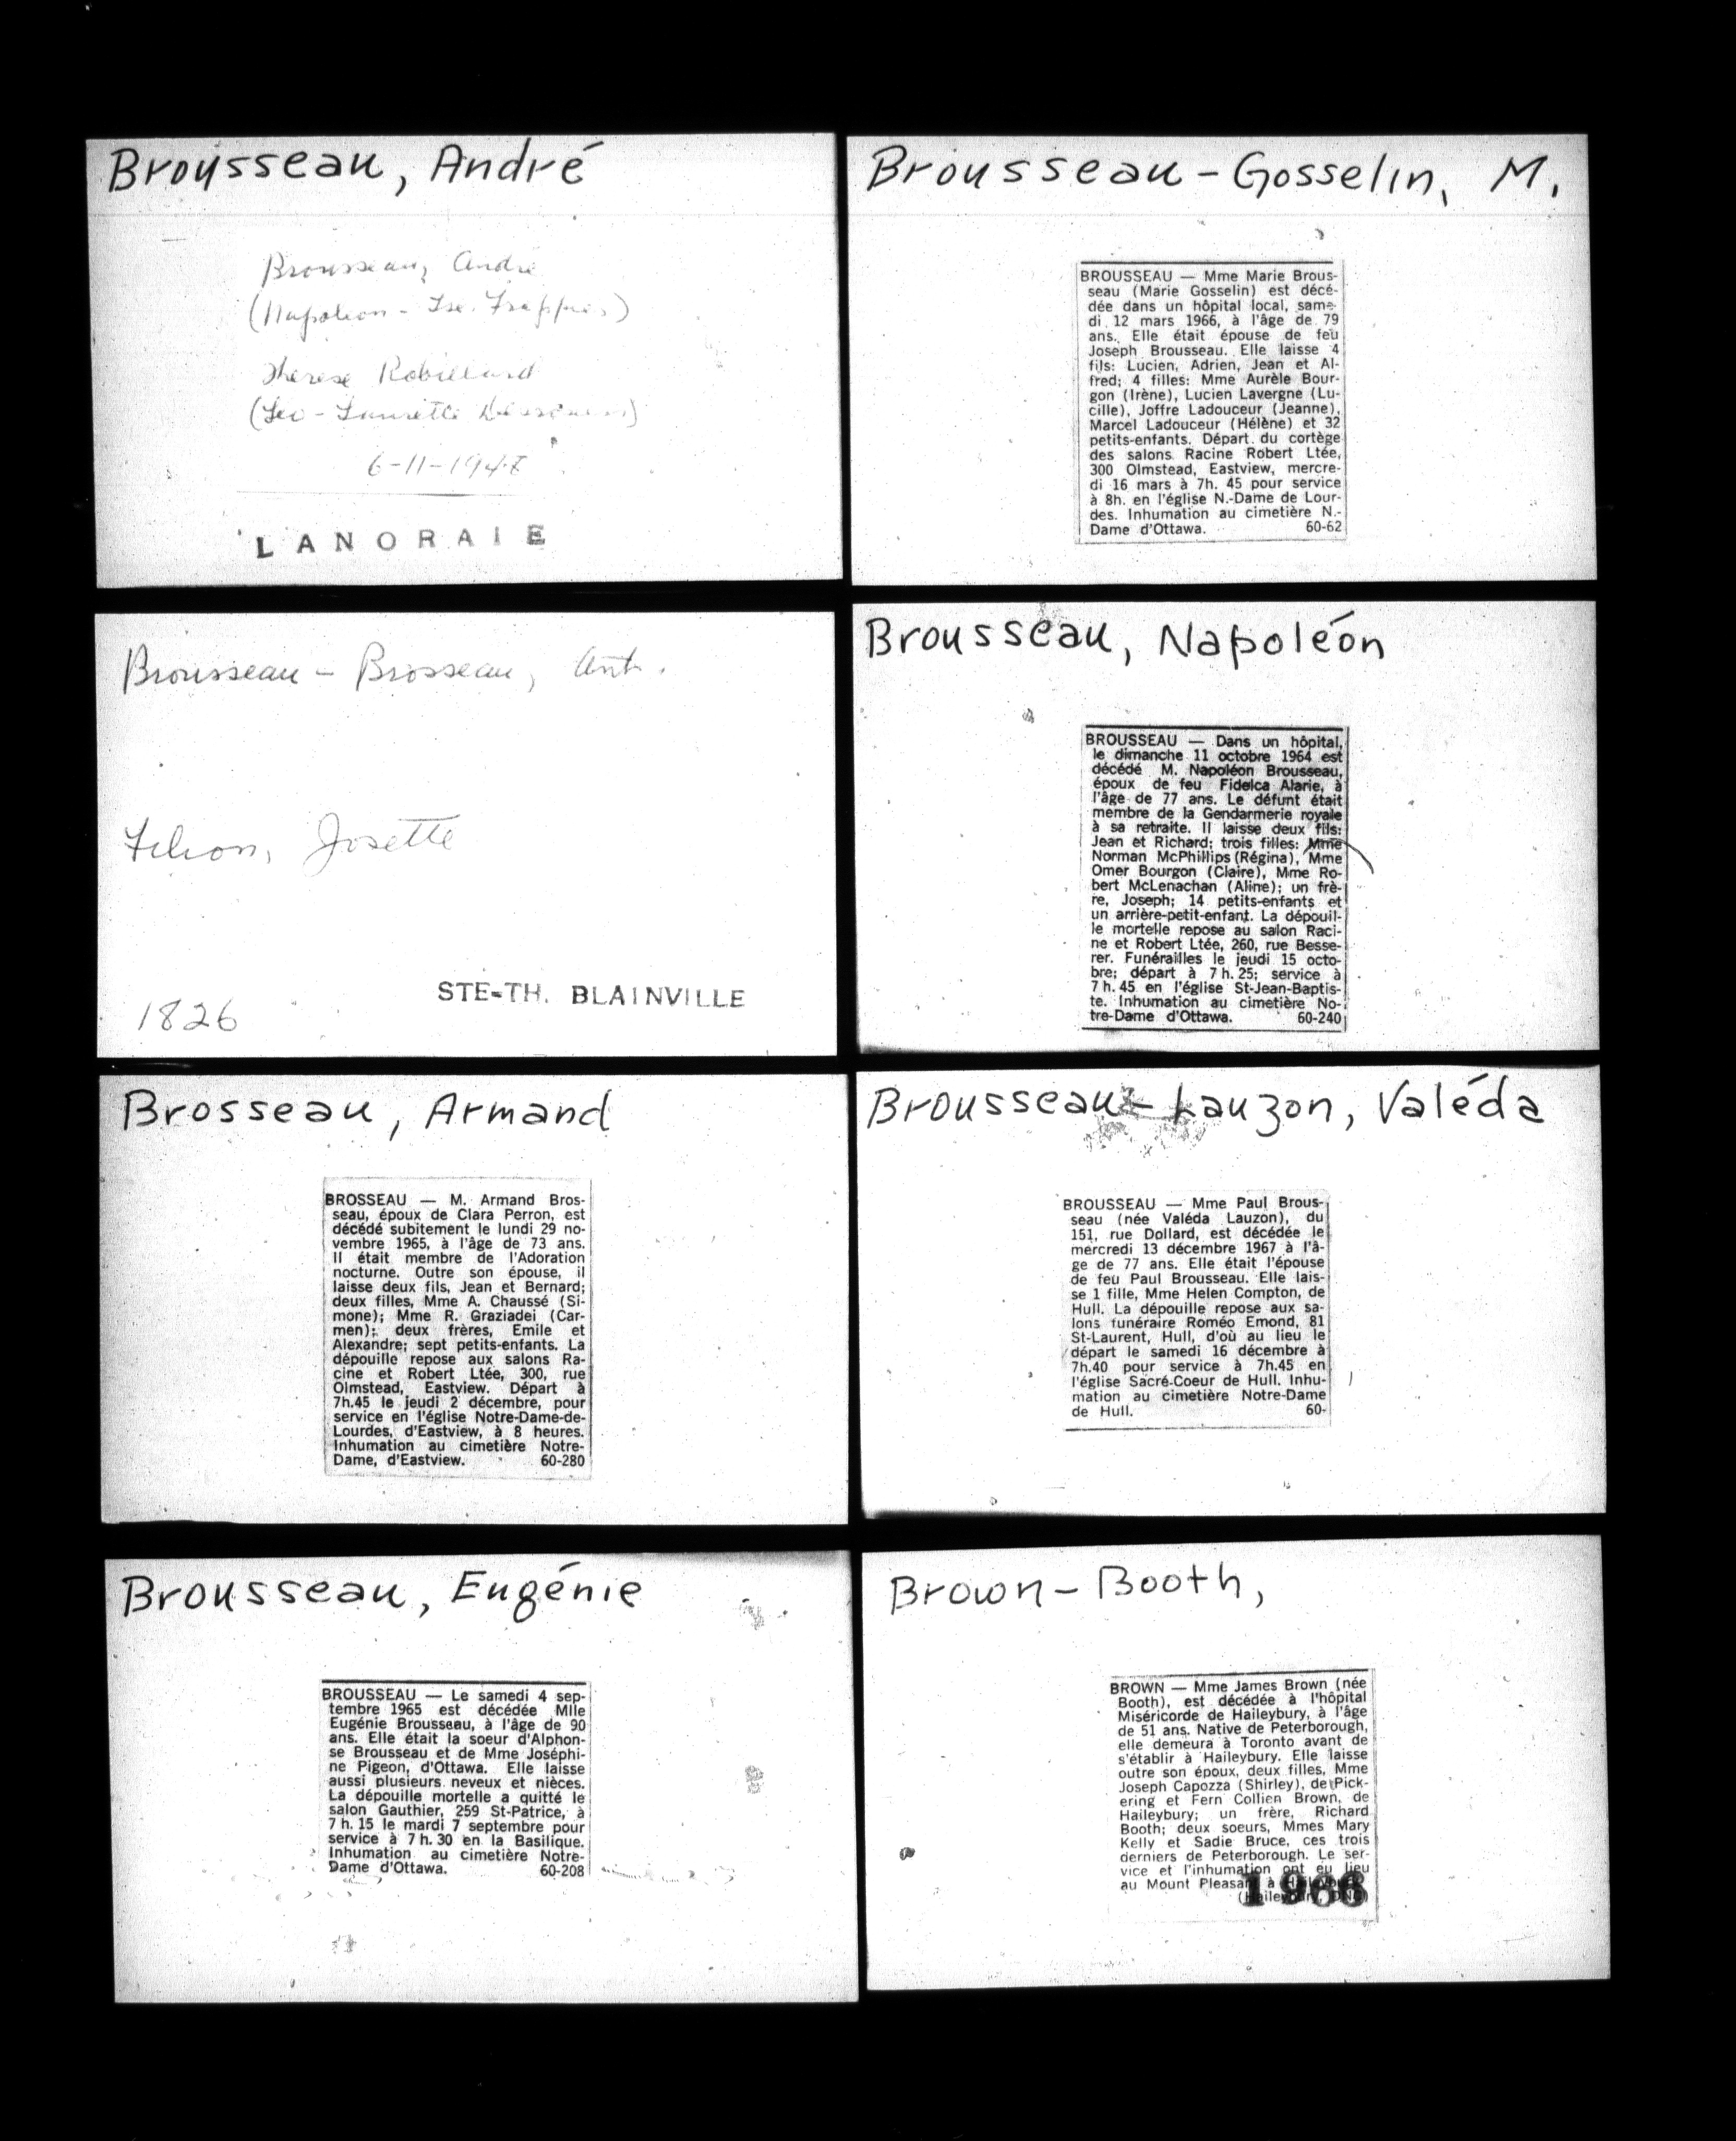 Brousseau, André
Brousseau, André
(Napoléon -
Thérèse Robillard
6-11-1948
LANORAIE
Brousseau-Gosselin, M.
BROUSSEAU — Mme Marie Brous-
seau (Marie Gosselin) est décé-
dée dans un hôpital local, same-
di 12 mars 1966, à l'âge de 79
ans. Elle était épouse de feu
Joseph Brousseau. Elle laisse 4
fils: Lucien, Adrien, Jean et Al-
fred; 4 filles: Mme Aurèle Bour-
gon (Irène), Lucien Lavergne (Lu-
cille), Joffre Ladouceur (Jeanne),
Marcel Ladouceur (Hélène) et 32
petits-enfants. Départ du cortège
des salons Racine Robert Ltée,
300 Olmstead, Eastview, mercre-
di 16 mars à 7h. 45 pour service
à 8h. en l'église N.-Dame de Lour-
des. Inhumation au cimetière N.-
Dame d'Ottawa. 60-62
Brousseau - Brosseau, Ant.
Filion, Josette
1826
STE-TH. BLAINVILLE
Brousseau, Napoléon
BROUSSEAU — Dans un hôpital,
le dimanche 11 octobre 1964 est
décédé M. Napoléon Brousseau,
époux de feu Fidelca Alarie, à
l'âge de 77 ans. Le défunt était
membre de la Gendarmerie royale
à sa retraite. Il laisse deux fils:
Jean et Richard; trois filles: Mme
Norman McPhillips (Régina), Mme
Omer Bourgon (Claire), Mme Ro-
bert McLenachan (Aline); un frè-
re, Joseph; 14 petits-enfants et
un arrière-petit-enfant. La dépouil-
le mortelle repose au salon Raci-
ne et Robert Ltée, 260, rue Besse-
rer. Funérailles le jeudi 15 octo-
bre; départ à 7 h. 25; service à
7 h. 45 en l'église St-Jean-Baptis-
te. Inhumation au cimetière No-
tre-Dame d'Ottawa. 60-240
Brosseau, Armand
BROSSEAU — M. Armand Bros-
seau, époux de Clara Perron, est
décédé subitement le lundi 29 no-
vembre 1965, à l'âge de 73 ans.
Il était membre de l'Adoration
nocturne. Outre son épouse, il
laisse deux fils, Jean et Bernard;
deux filles, Mme A. Chaussé (Si-
mone); Mme R. Graziadei (Car-
men); deux frères, Emile et
Alexandre; sept petits-enfants. La
dépouille repose aux salons Ra-
cine et Robert Ltée, 300, rue
Olmstead, Eastview. Départ à
7h.45 le jeudi 2 décembre, pour
service en l'église Notre-Dame-de-
Lourdes, d'Eastview, à 8 heures.
Inhumation au cimetière Notre-
Dame, d'Eastview. 60-280
Brousseau-Lauzon, Valéda
BROUSSEAU — Mme Paul Brous-
seau (née Valéda Lauzon), du
151, rue Dollard, est décédée le
mercredi 13 décembre 1967 à l'â-
ge de 77 ans. Elle était l'épouse
de feu Paul Brousseau. Elle lais-
se 1 fille, Mme Helen Compton, de
Hull. La dépouille repose aux sa-
lons funéraire Roméo Emond, 81
St-Laurent, Hull, d'où au lieu le
départ le samedi 16 décembre à
7h.40 pour service à 7h.45 en
l'église Sacré-Coeur de Hull. Inhu-
mation au cimetière Notre-Dame
de Hull. 60-
Brousseau, Eugénie
BROUSSEAU — Le samedi 4 sep-
tembre 1965 est décédée Mlle
Eugénie Brousseau, à l'âge de 90
ans. Elle était la soeur d'Alphon-
se Brousseau et de Mme Joséphi-
ne Pigeon, d'Ottawa. Elle laisse
aussi plusieurs neveux et nièces.
La dépouille mortelle a quitté le
salon Gauthier, 259 St-Patrice, à
7 h. 15 le mardi 7 septembre pour
service à 7 h. 30 en la Basilique.
Inhumation au cimetière Notre-
Dame d'Ottawa. 60-208
Brown-Booth,
BROWN — Mme James Brown (née
Booth), est décédée à l'hôpital
Miséricorde de Haileybury, à l'âge
de 51 ans. Native de Peterborough,
elle demeura à Toronto avant de
s'établir à Haileybury. Elle laisse
outre son époux, deux filles, Mme
Joseph Capozza (Shirley), de Pick-
ering et Fern Collien Brown, de
Haileybury; un frère, Richard
Booth; deux soeurs, Mmes Mary
Kelly et Sadie Bruce, ces trois
derniers de Peterborough. Le ser-
vice et l'inhumation ont eu lieu
au Mount Pleasant à Haileybury.
(Haileybury, DNC)
1966